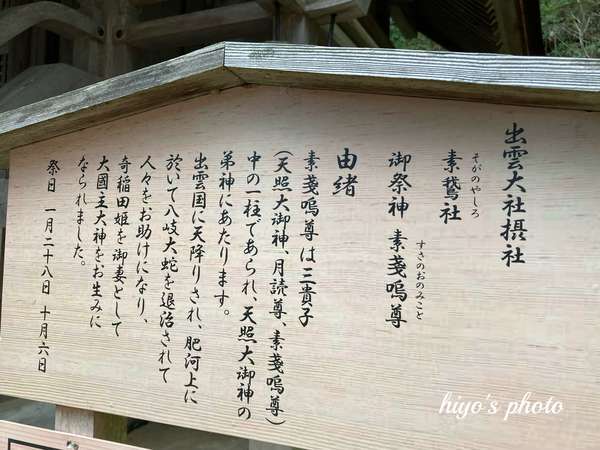 出雲大社摂社
素鵞社
そがのやしろ
御祭神 素戔嗚尊
すさのおのみこと
由緒
素戔嗚尊は三貴子
(天照大御神、月読尊、素戔嗚尊)
中の一柱であられ、天照大御神の
弟神にあたります。
出雲国に天降りされ、肥河上に
於いて八岐大蛇を退治されて
人々をお助けになり、
奇稲田姫を御妻として
大國主大神をお生みに
なられました。
祭日 一月二十八日 十月六日
hiyo's photo